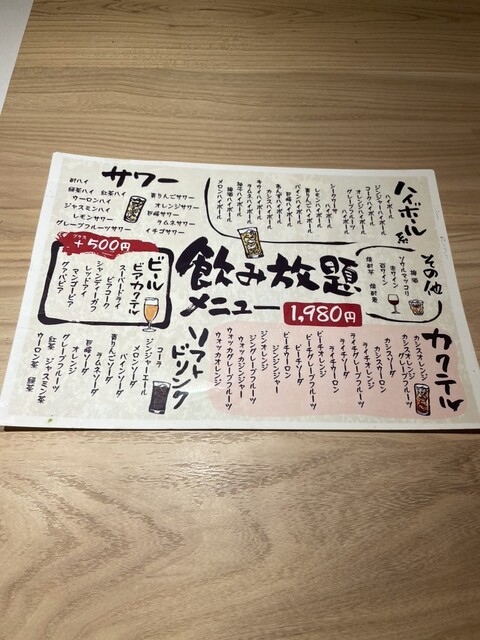 サワー
酎ハイ
緑茶ハイ 紅茶ハイ
ウーロンハイ
ジャスミンハイ
レモンサワー
グレープフルーツサワー
青りんごサワー
オレンジサワー
巨峰サワー
ラムネサワー
イチゴサワー
ハイボール系
ハイボール
ジンジャーハイボール
コークハイボール
オレンジハイボール
グレープフルーツハイボール
シークワーサーハイボール
レモンハイボール
青りんごハイボール
パインハイボール
巨峰ハイボール
あんずハイボール
カシスハイボール
キウイハイボール
ラムネハイボール
梅酒ハイボール
メロンハイボール
その他
梅酒
ソウルマッコリ
赤ワイン
白ワイン
焼酎麦
焼酎芋
プラス
+500円
ビール
ビアカクテル
スーパードライ
ビアコーク
シャンディーガフ
レッドアイ
マンゴービア
グァバビア
飲み放題
メニュー 1,980円
ソフトドリンク
コーラ
ジンジャーエール
メロンソーダ
パインソーダ
青りんごソーダ
ラムネソーダ
巨峰ソーダ
グレープフルーツ
オレンジ
紅茶 ジャスミン茶
ウーロン茶 緑茶
カクテル
カシスオレンジ
カシスグレープフルーツ
カシスウーロン
カシスソーダ
ライチオレンジ
ライチグレープフルーツ
ライチウーロン
ピーチオレンジ
ピーチグレープフルーツ
ピーチウーロン
ピーチジンジャー
ジンオレンジ
ジングレープフルーツ
ジンジンジャー
ウォッカジンジャー
ウォッカグレープフルーツ
ウォッカオレンジ